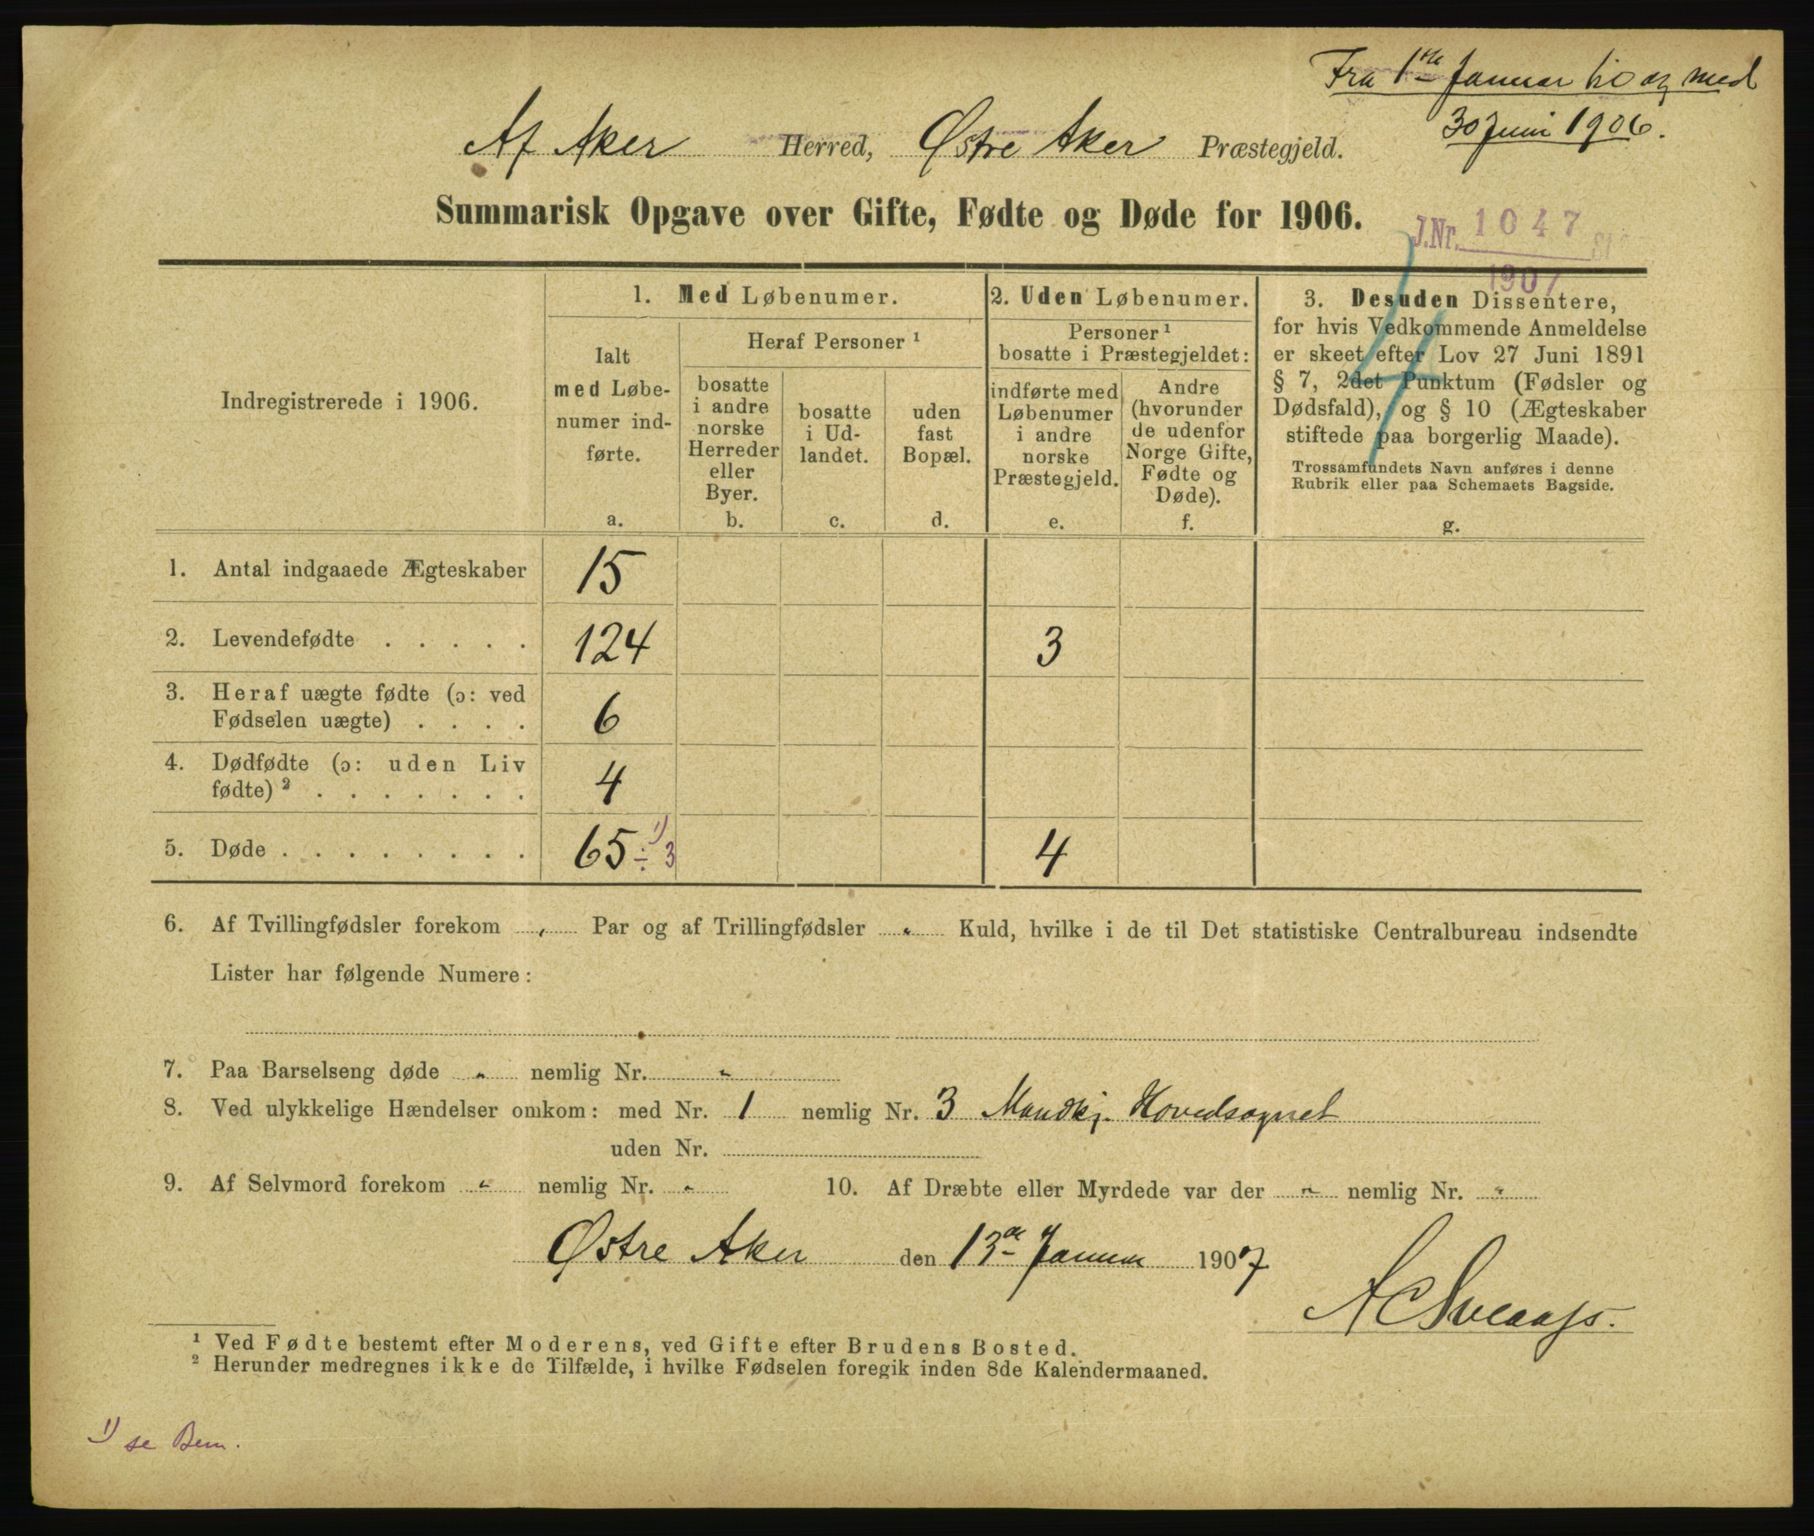 Fra 1ste Januar til og med
30 Juni 1906.
Af Aker Herred, Østre Aker Præstegjeld.
Summarisk Opgave over Gifte, Fødte og Døde for 1906.
J.Nr. 1047
1907
4
Indregistrerede i 1906.
1. Med Løbenumer.
Ialt
med Løbe-
numer ind-
førte.
a.
Heraf Personer ¹
bosatte
i andre
norske
Herreder
eller
Byer.
b.
bosatte
i Ud-
landet.
c.
uden
fast
Bopæl.
d.
2. Uden Løbenumer.
Personer ¹
bosatte i Præstegjeldet:
indførte med
Løbenumer
i andre
norske
Præstegjeld.
e.
Andre
(hvorunder
de udenfor
Norge Gifte,
Fødte og
Døde).
f.
3. Desuden Dissentere,
for hvis Vedkommende Anmeldelse
er skeet efter Lov 27 Juni 1891
§ 7, 2det Punktum (Fødsler og
Dødsfald), og § 10 (Ægteskaber
stiftede paa borgerlig Maade).
Trossamfundets Navn anføres i denne
Rubrik eller paa Schemaets Bagside.
g.
1. Antal indgaaede Ægteskaber 15
2. Levendefødte . . . . . 124 3
3. Heraf uægte fødte (ɔ: ved
Fødselen uægte) . . . . 6
4. Dødfødte (ɔ: uden Liv
fødte) ² . . . . . . . 4
5. Døde . . . . . . . . 65 ÷ 3 ¹) 4
6. Af Tvillingfødsler forekom „ Par og af Trillingfødsler „ Kuld, hvilke i de til Det statistiske Centralbureau indsendte
Lister har følgende Numere:
7. Paa Barselseng døde „ nemlig Nr. „
8. Ved ulykkelige Hændelser omkom: med Nr. 1 nemlig Nr. 3 Mandkj. Hovedsognet
uden Nr.
9. Af Selvmord forekom „ nemlig Nr. „ 10. Af Dræbte eller Myrdede var der „ nemlig Nr. „
Østre Aker den 13de Januar 1907
¹ Ved Fødte bestemt efter Moderens, ved Gifte efter Brudens Bosted.
² Herunder medregnes ikke de Tilfælde, i hvilke Fødselen foregik inden 8de Kalendermaaned.
¹) se Bem.